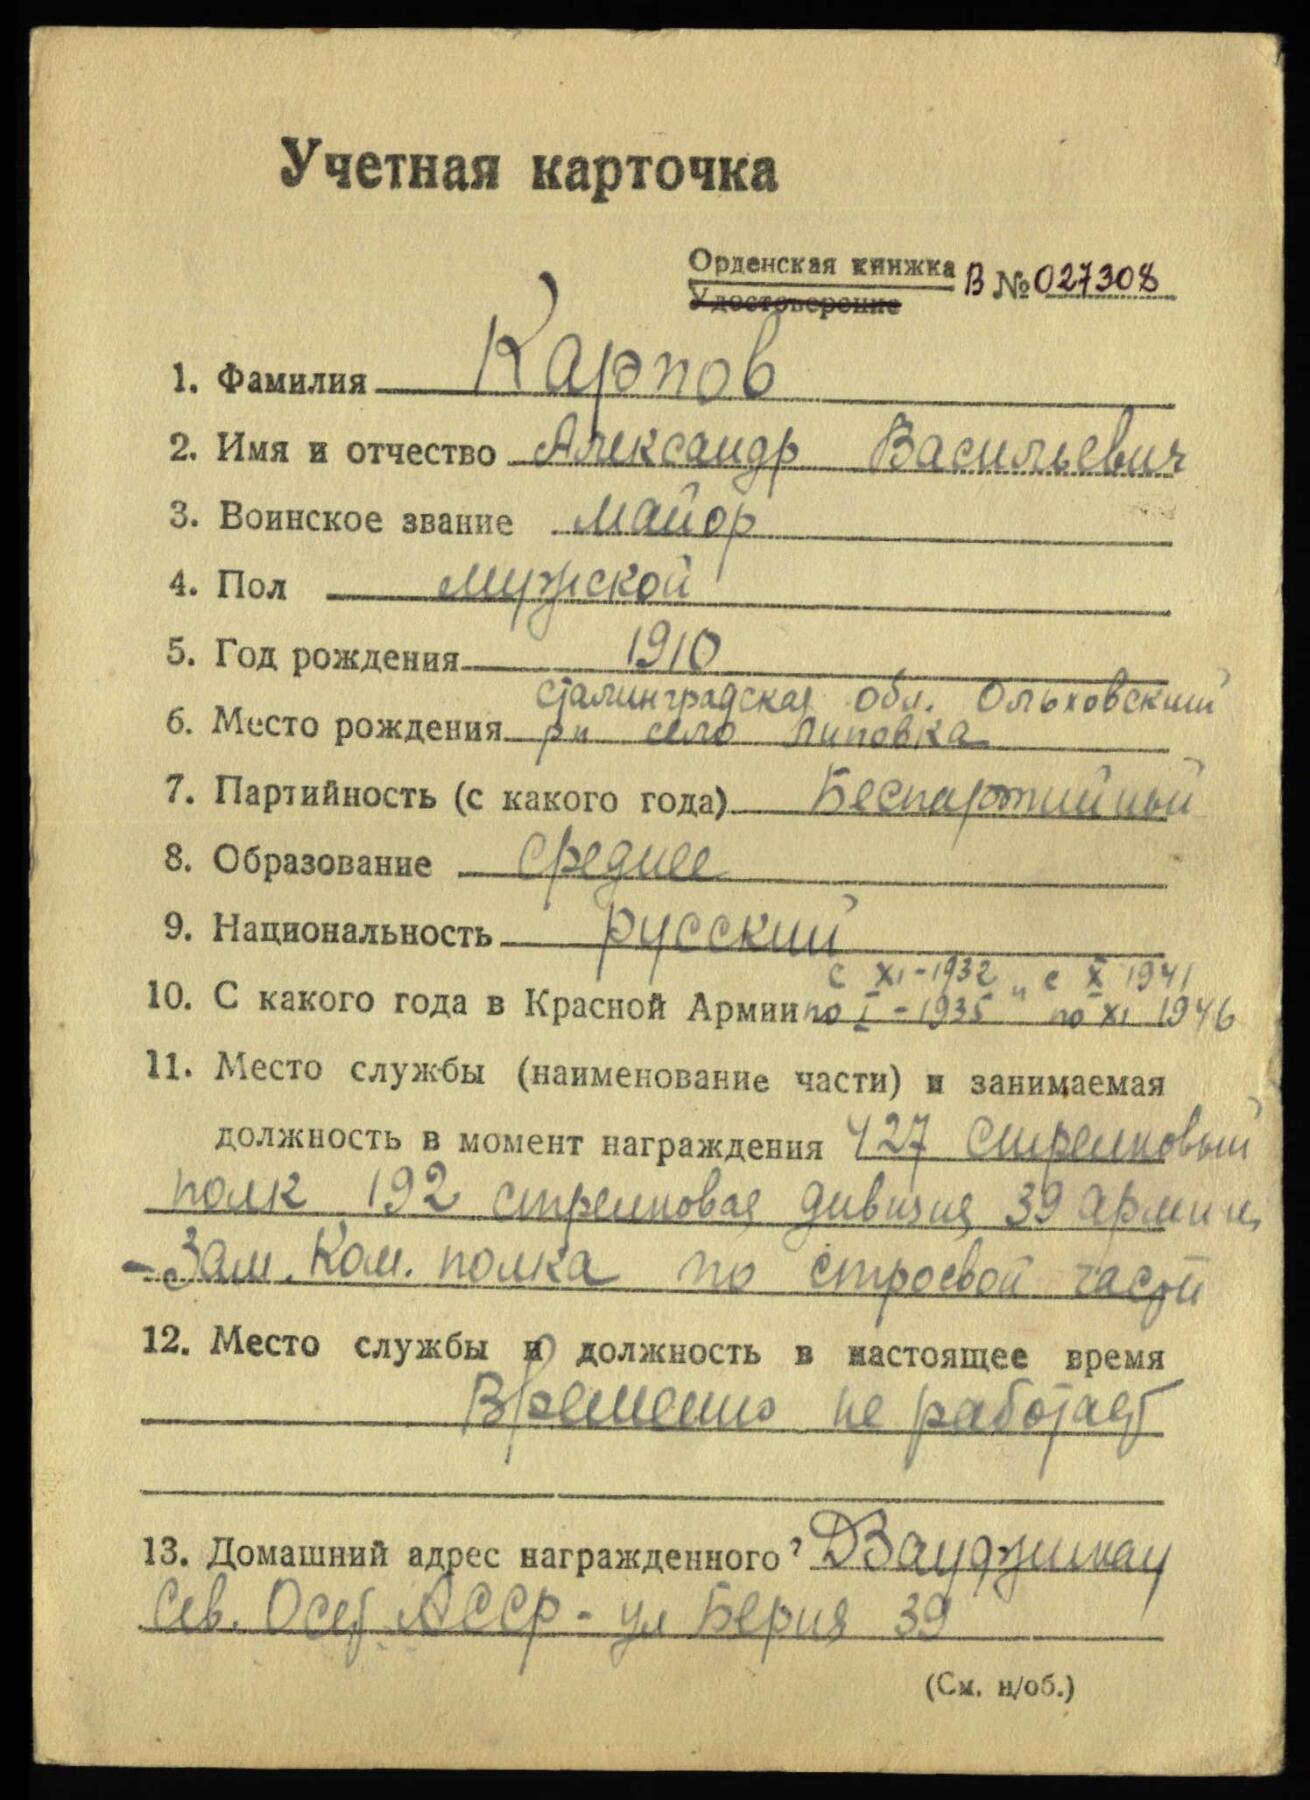 Учетная карточка
Орденская книжка В № 027308
Удостоверение
1. Фамилия Карпов
2. Имя и отчество Александр Васильевич
3. Воинское звание майор
4. Пол мужской
5. Год рождения 1910
Сталинградская обл. Ольховский
6. Место рождения рн село Липовка
7. Партийность (с какого года) Беспартийный
8. Образование среднее
9. Национальность русский
с XI-1932 " с X 1941
10. С какого года в Красной Армии по I-1935 по XI 1946
11. Место службы (наименование части) и занимаемая
должность в момент награждения 427 стрелковый
полк 192 стрелковая дивизия 39 армии,
- Зам. Ком. полка по строевой части
12. Место службы и должность в настоящее время
Временно не работает
13. Домашний адрес награжденного г Дзауджикау
Сев. Осет АССР - ул Берия 39
(См. н/об.)